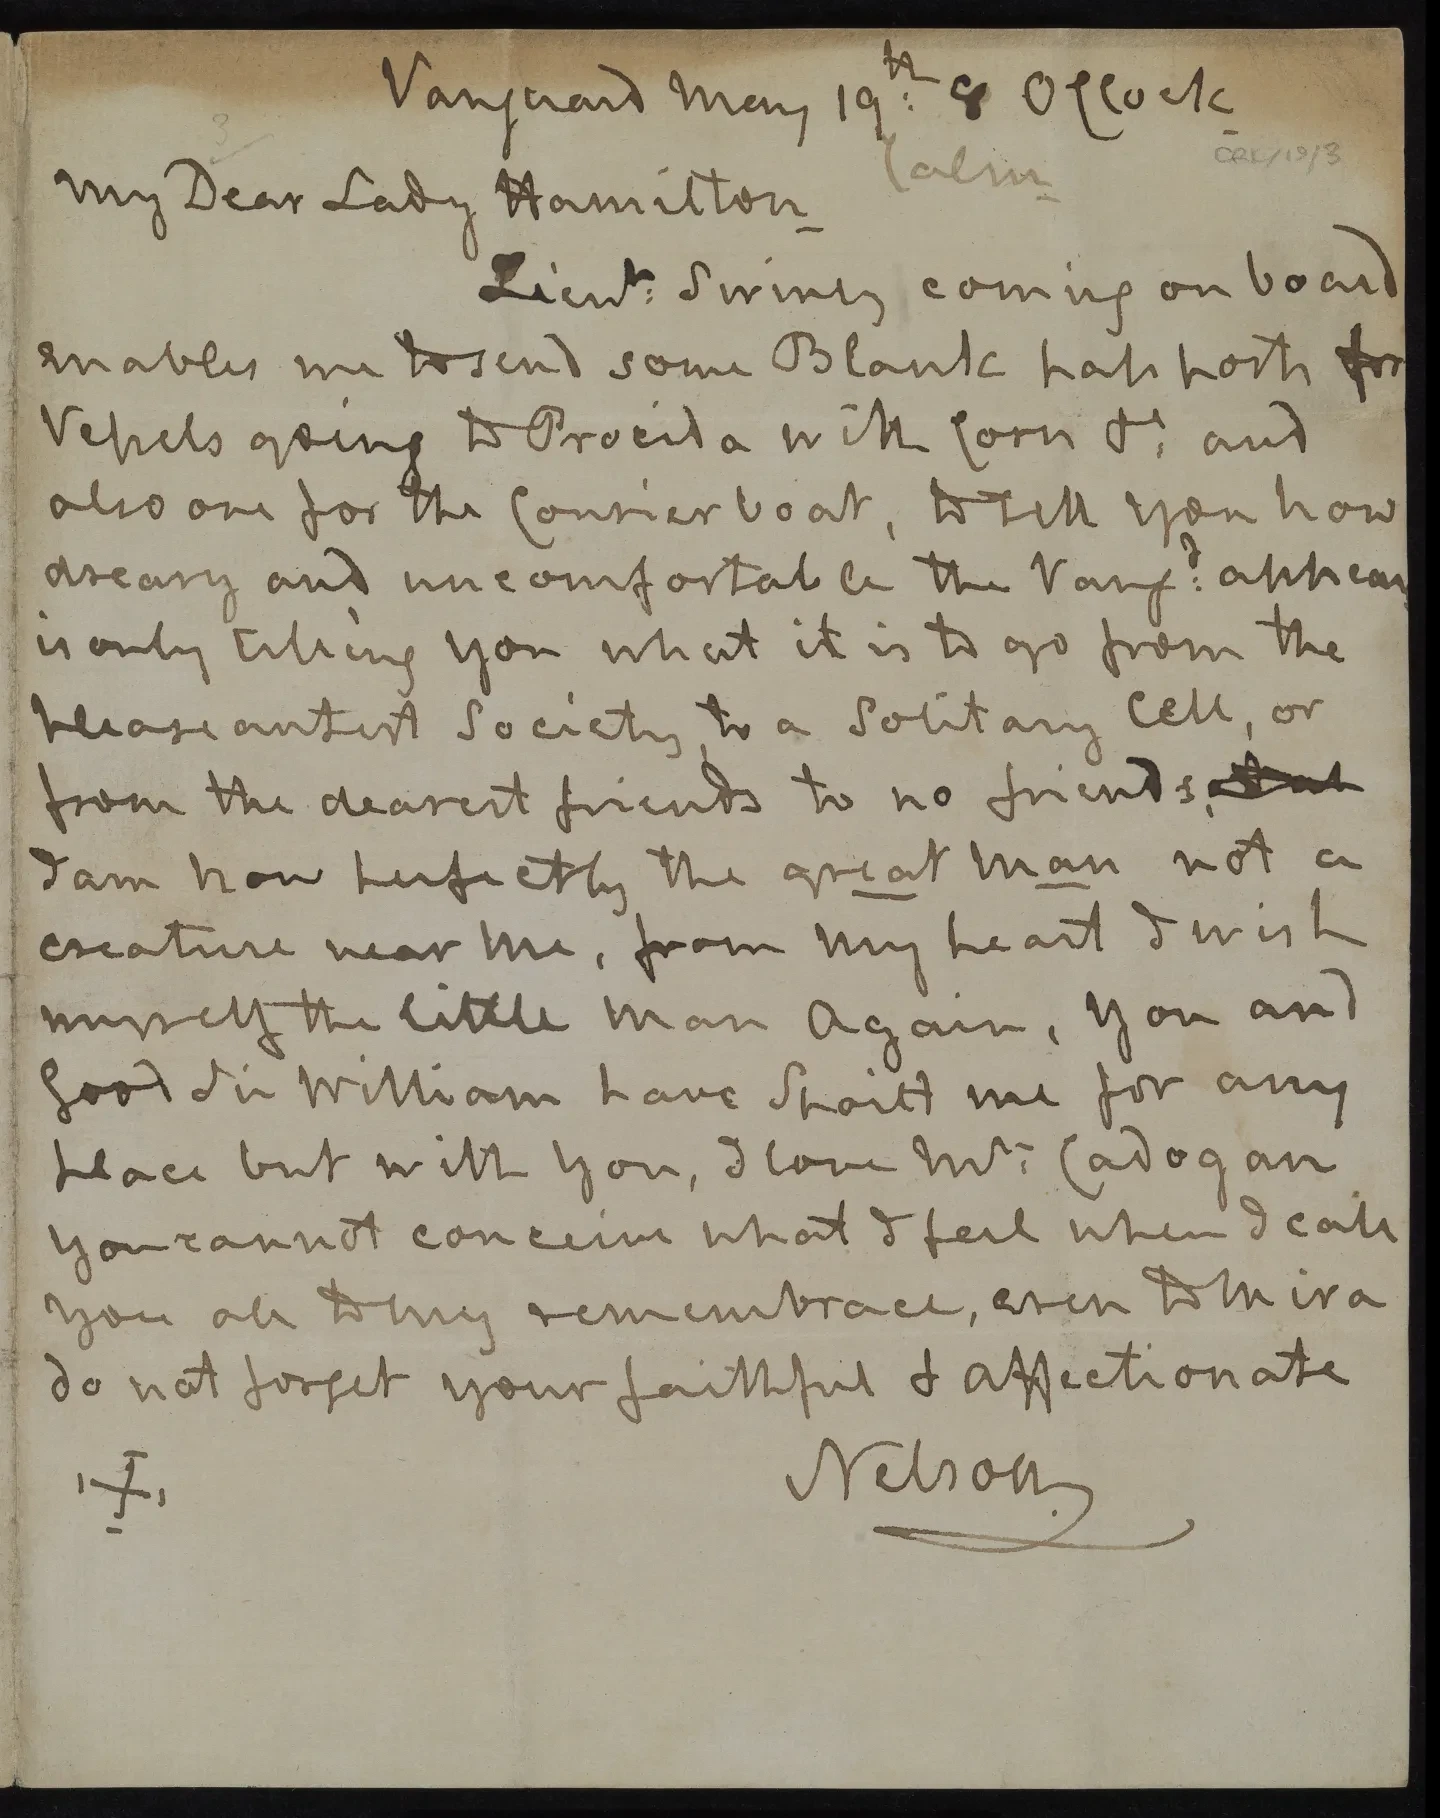 Vanguard May 19th: 8 OClock
Calm
CRK/19/3
3
My Dear Lady Hamilton
Lieut: Swiney coming on board
enables me to send some Blank passports for
Vessels going to Procida with Corn &c: and
also one for the Courier boat, to tell you how
dreary and uncomfortable the Vangd: appears
is only telling you what it is to go from the
pleaseantest Society, to a Solitary Cell, or
from the dearest friends to no friends,
I am now perfectly the great Man not a
creature near Me, from My heart I wish
myself the little Man Again, You and
Good Sir William have Spoilt me for any
place but with You, I love Mrs: Cadogan
You cannot conceive what I feel when I call
you all to My remembrace, even to Mira
do not forget your faithful & affectionate
Nelson.